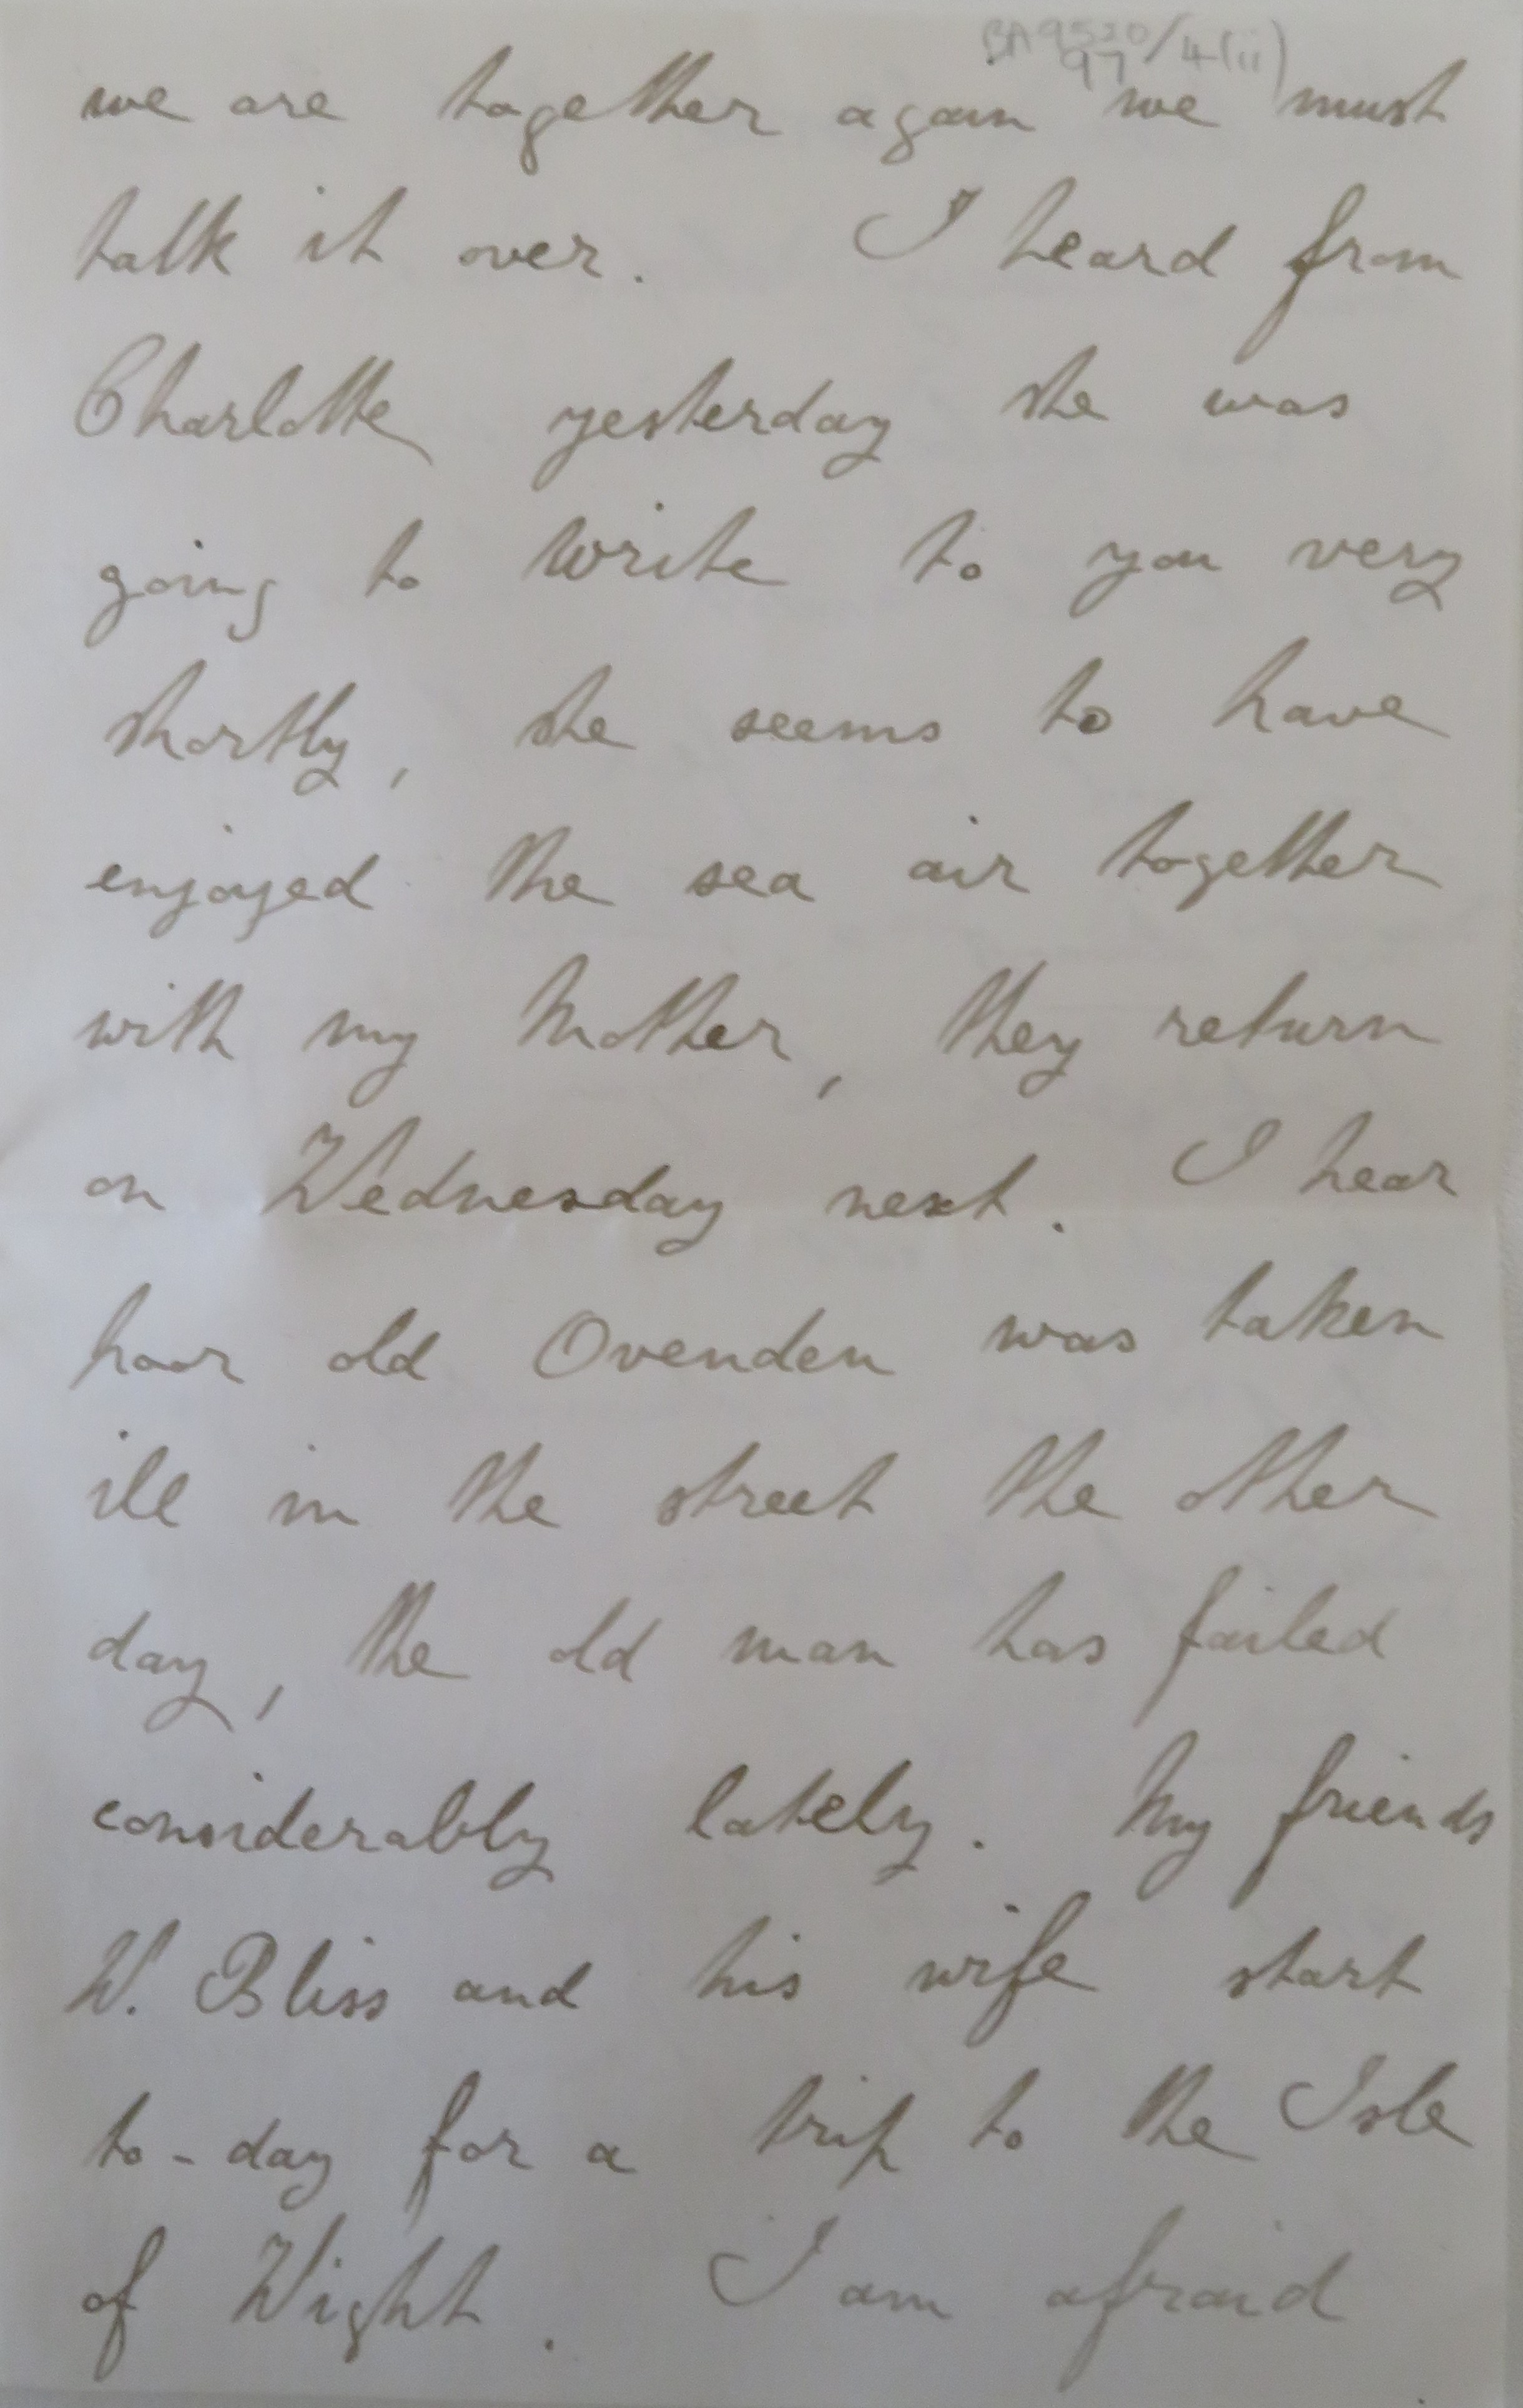 BA9520/4(ii)
97
we are together again we must
talk it over. I heard from
Charlotte yesterday she was
going to write to you very
shortly, she seems to have
enjoyed the sea air together
with my Mother, they return
on Wednesday next. I hear
poor old Ovenden was taken
ill in the street the other
day, the old man has failed
considerably lately. My friends
W. Bliss and his wife start
to-day for a trip to the Isle
of Wight. I am afraid